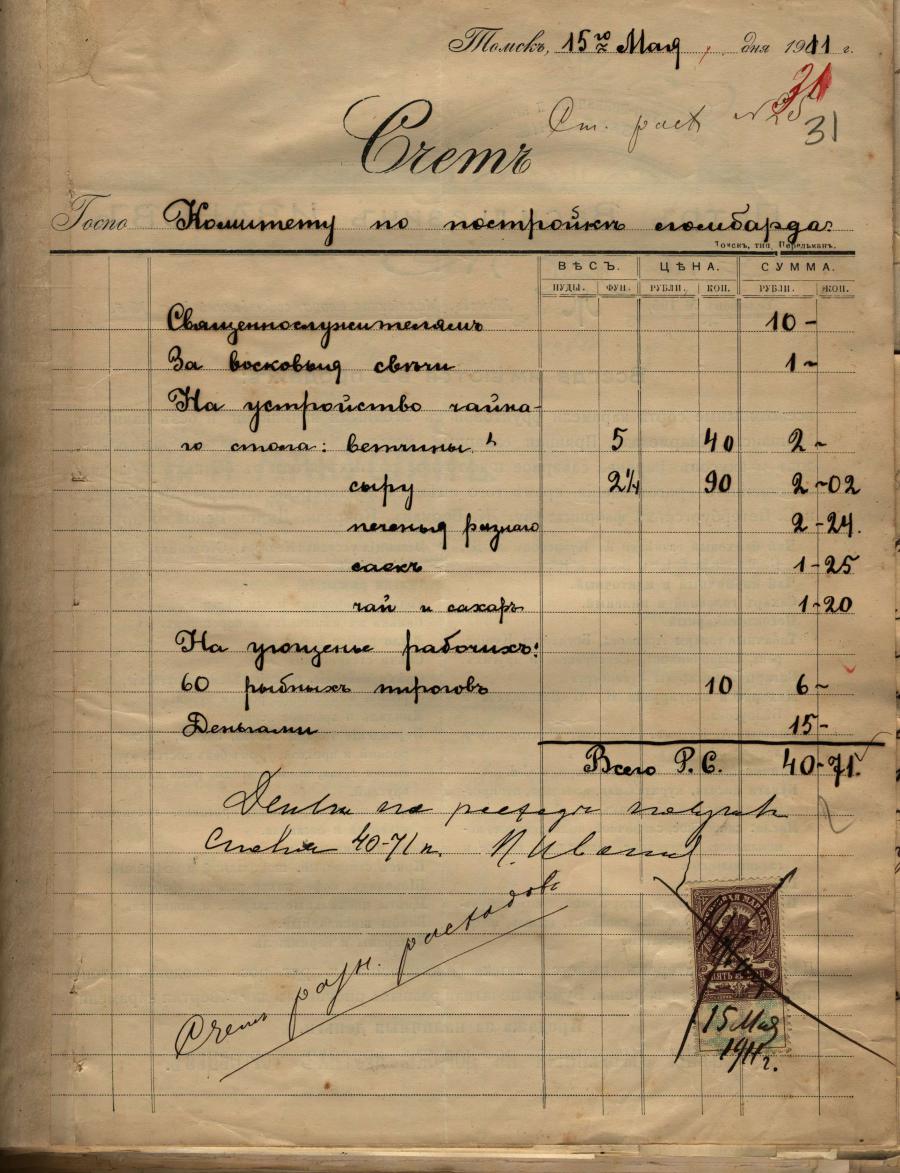 Томскъ, 15го Мая дня 1911 г.
31
Ст. расх № 25
31
Счетъ
Госпо Комитету по постройкѣ ломбарда.
Томскъ, тип. Перельманъ.
ВѢСЪ. ЦѢНА. СУММА.
ПУДЫ. ФУН. РУБЛИ. КОП. РУБЛИ. КОП.
Священнослужителямъ 10 -
За восковыя свѣчи 1 -
На устройство чайна-
го стола: ветчины 5 40 2 -
сыру 2¼ 90 2 - 02
печенья разнаго 2 - 24.
саекъ 1 - 25
чай и сахаръ 1 - 20
На угощенье рабочихъ:
60 рыбныхъ пироговъ 10 6 -
Деньгами 15 -
Всего Р. С. 40 - 71.
Деньги на расходы получилъ
сполна 40-71 к.
Счетъ разн. расходовъ
15 Мая
1911 г.